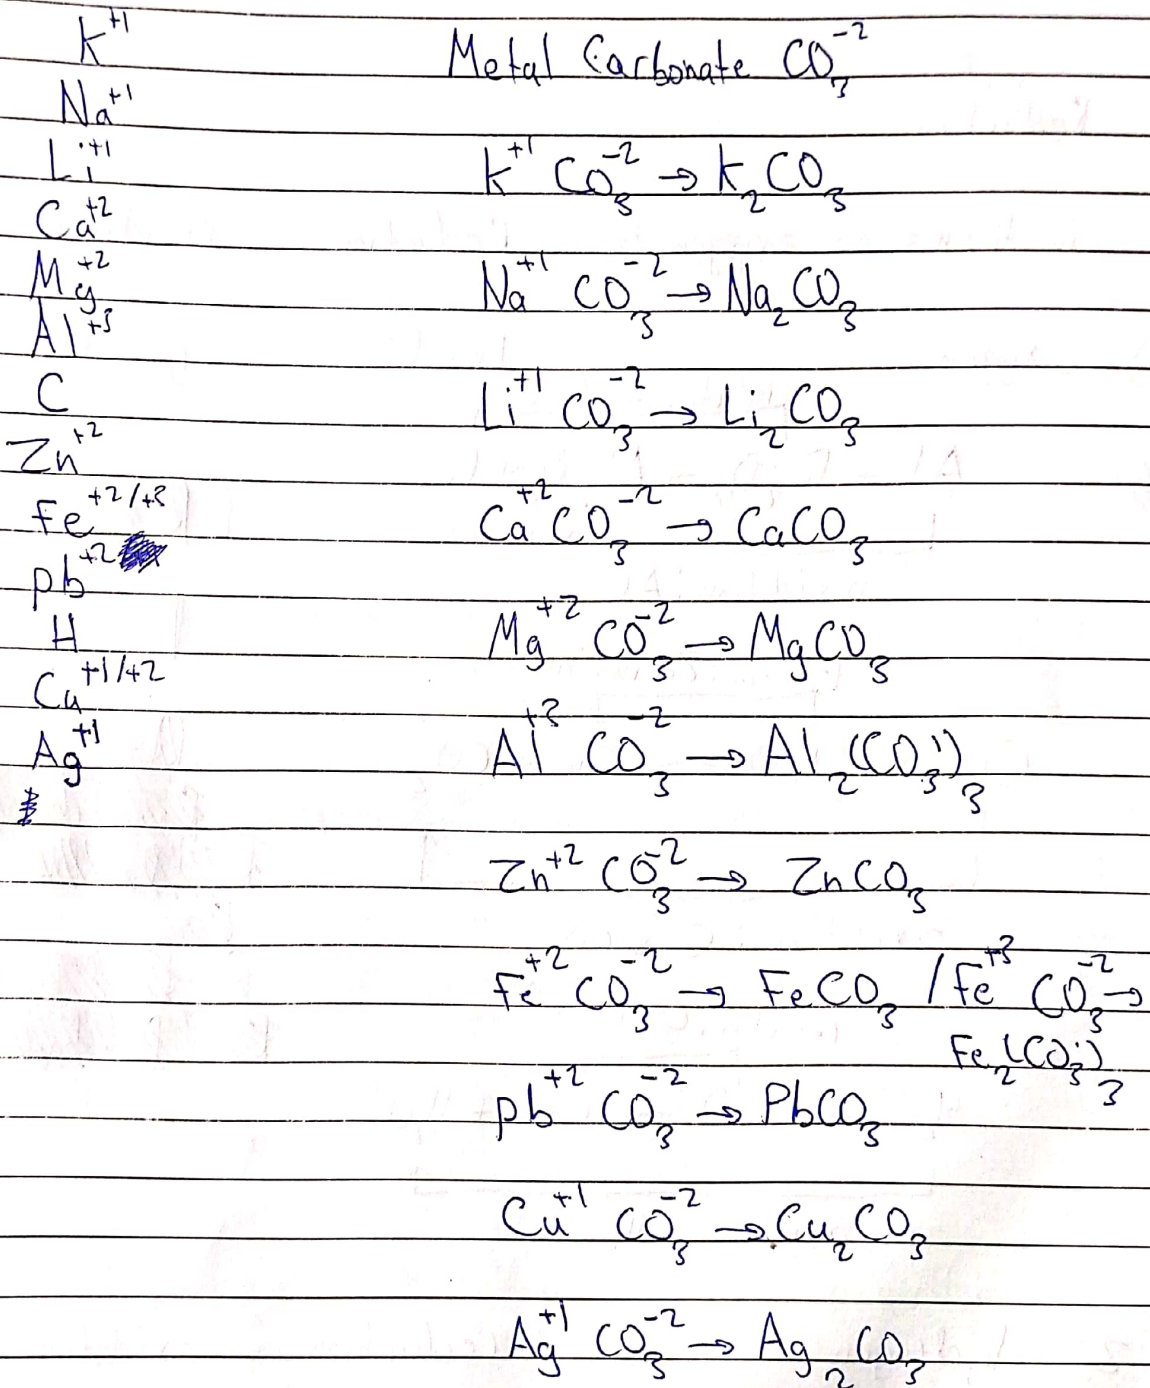 K⁺¹
Na⁺¹
Li⁺¹
Ca⁺²
Mg⁺²
Al⁺³
C
Zn⁺²
Fe⁺²/⁺³
pb⁺²
H
Cu⁺¹/⁺²
Ag⁺¹
Metal Carbonate CO₃⁻²
K⁺¹ CO₃⁻² → K₂CO₃
Na⁺¹ CO₃⁻² → Na₂CO₃
Li⁺¹ CO₃⁻² → Li₂CO₃
Ca⁺² CO₃⁻² → CaCO₃
Mg⁺² CO₃⁻² → MgCO₃
Al⁺³ CO₃⁻² → Al₂(CO₃)₃
Zn⁺² CO₃⁻² → ZnCO₃
Fe⁺² CO₃⁻² → FeCO₃ / Fe⁺³ CO₃⁻² →
Fe₂(CO₃)₃
pb⁺² CO₃⁻² → PbCO₃
Cu⁺¹ CO₃⁻² → Cu₂CO₃
Ag⁺¹ CO₃⁻² → Ag₂CO₃